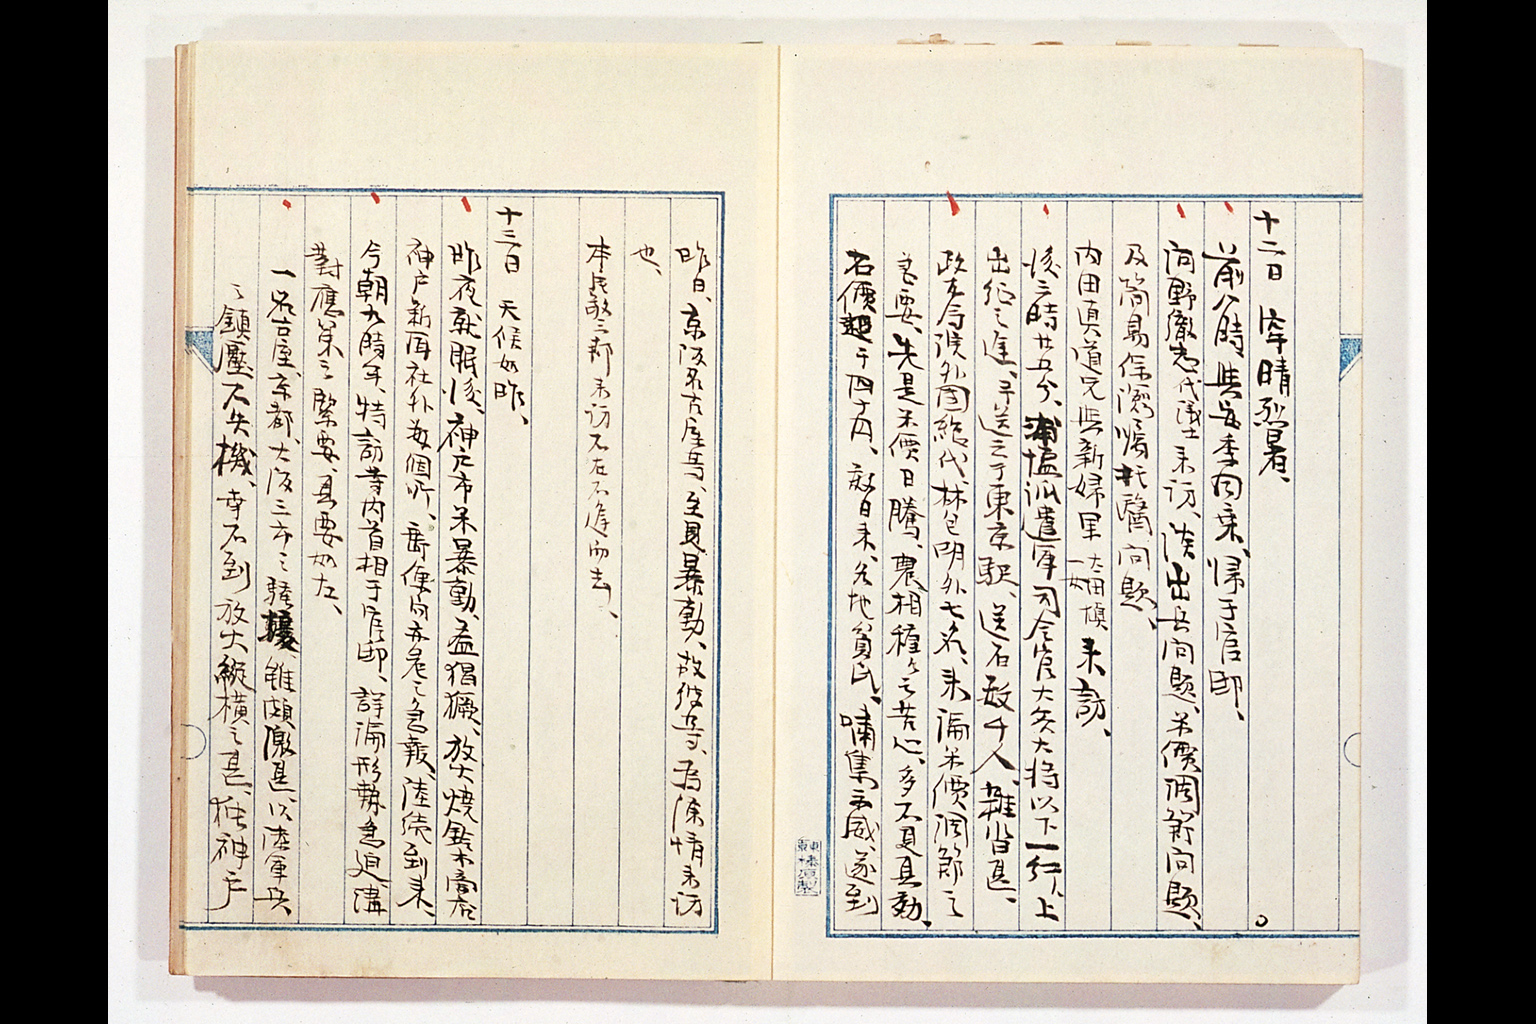 十二日 洊晴烈暑、
前八時、與安季同乗、帰于官邸、
河野徹志代議士来訪、談出兵問題、米價調節問題、
及簡易保険嘱托醫問題、
内田真道兄與新婦里大田娘来訪、
後三時廿五分、浦塩派遣軍司令官大谷大将以下一行、上
出征之途、予送之于東京駅、送者数千人、雑沓甚、
政友会院外団総代林包明外七名、来論米價調節之
急要、先是米價日騰、農相種々之苦心、多不見其効、
石價超于四十円、数日来、各地貧民、嘯集示威、遂到
昨日、京阪名古屋等、至見暴動、故彼等、為陳情来訪
也、
本民敬三郎来訪不在不逢而去、
十三日 天候如昨、
昨夜就眠後、神戸市米暴動、益猖獗、放火焼鈴木商店
神戸新聞社外数個所、岳使島亦是之急報、陸続到来、
今朝九時半、特訪寺内首相于官邸、詳論形勢急迫、講
對應策之緊要、其要如左、
一名古屋、京都、大阪三市之騒擾、雖頗激甚、以陸軍兵
之鎮壓、不失機、幸不到放火縦横之甚、独神戸
東京榛原製